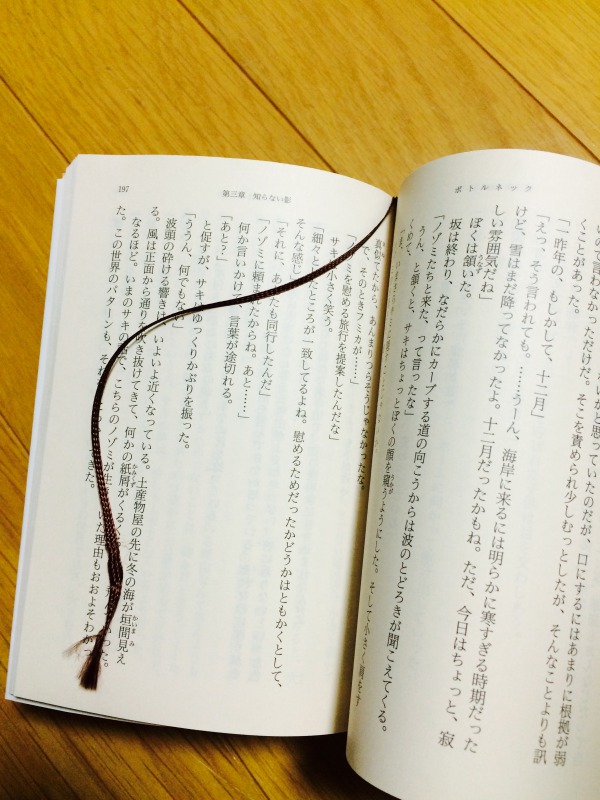 ボトルネック
思っていたのだが、口にするにはあまりに根拠が弱
いので言わなかっただけだ。そこを責められ少しむっとしたが、そんなことよりも訊
くことがあった。
「一昨年の、もしかして、十二月」
「えっ、そう言われても。……うーん、海岸に来るには明らかに寒すぎる時期だった
けど、雪はまだ降ってなかったよ。十二月だったかもね。ただ、今日はちょっと、寂
しい雰囲気だね」
ぼくは頷うなずいた。
坂は終わり、なだらかにカーブする道の向こうからは波のとどろきが聞こえてくる。
「ノゾミたちと来た、って言ったな」
うん、と頷くと、サキはちょっとぼくの顔を窺うかがうようにした。そして小さく肩をす
くめて、
第三章 知らない影
197
たから、あんまりつらそうじゃなかったな。
で、そのときフミカが……」
ノゾミを慰める旅行を提案したんだな」
サキは小さく笑う。
「細々としたところが一致してるよね。慰めるためだったかどうかはともかくとして、
そんな感じ」
「それに、あなたも同行したんだ」
「ノゾミに頼まれたからね。あと……」
何か言いかけて、言葉が途切れる。
「あと？」
と促すが、サキはゆっくりかぶりを振った。
「ううん、何でもない」
波頭の砕ける響きは、いよいよ近くなっている。土産物屋の先に冬の海が垣間かいま見え
る。風は正面から通りを吹き抜けてきて、何かの紙屑かみくずがくるくる
なるほど。いまのサキの話で、こちらのノゾミが生 いた理由もおおよそわかっ
た。この世界のパターンも、それ てきた。